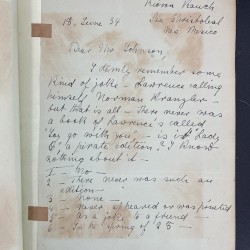 Kiowa Ranch
San Cristobal
New Mexico
18. June 34
Dear Mr Johnson,
I dimly remember some
kind of joke - Lawrence calling
himself Norman Kranzler -
but that is all - There never was
a book of Lawrence's called
go with you, - is it "Lady
C" a pirate edition? I know
nothing about it -
1 - No -
2 - There never was such an
edition -
3 - None -
4 - Never appeared or was printed
5 - As a joke, to a friend
6 - In the spring of 25 -